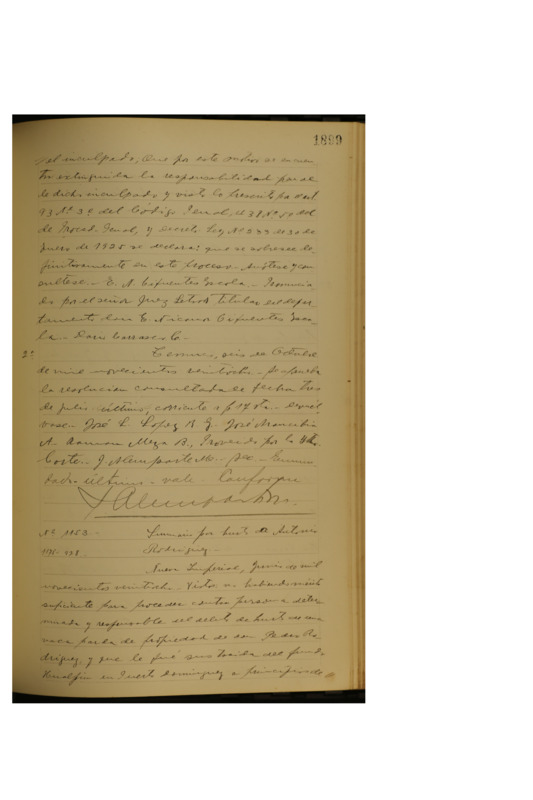 1899
del inculpado, que por este motivo se encuen-
tra extinguida la responsabilidad penal
de dicho inculpado y visto lo prescrito por el art.
93 Nº 3º del Código Penal, el
de Proced. Penal, y decreto Ley Nº 233 de 30 de
de 1925 se declara: que se sobresee de-
finitivamente en este proceso. Anótese y con-
súltese. E. N. Cifuentes Gacela. Pronuncia-
da por el señor Juez Letrado titular del depar-
tamento don E. Nicanor Cifuentes
la. Darío Carrasco C.
2ª
Temuco, seis de Octubre
de mil novecientos veintiocho. Se aprueba
la resolución consultada de fecha tres
de Julio último, corriente a f 17 vta. Devuél-
vase. José L. Lopez R. G. José
A. Ramon Meza B. Proveido por la Iltma.
Corte. J. Alemparte M. Sec. Enmen-
dado. último. vale. Conforme
J Alemparte M.
Nº 1163.
Sumario por hurto a Antonio
Rodriguez.
Nueva Imperial, de mil
novecientos veintiocho. Vistos: no habiendo mérito
suficiente para proceder contra persona deter-
minada y responsable del delito de hurto de una
vaca parda de propiedad de don Pedro Ro-
driguez, y que le fué sustraida del fundo
en Puerto Dominguez a principios de